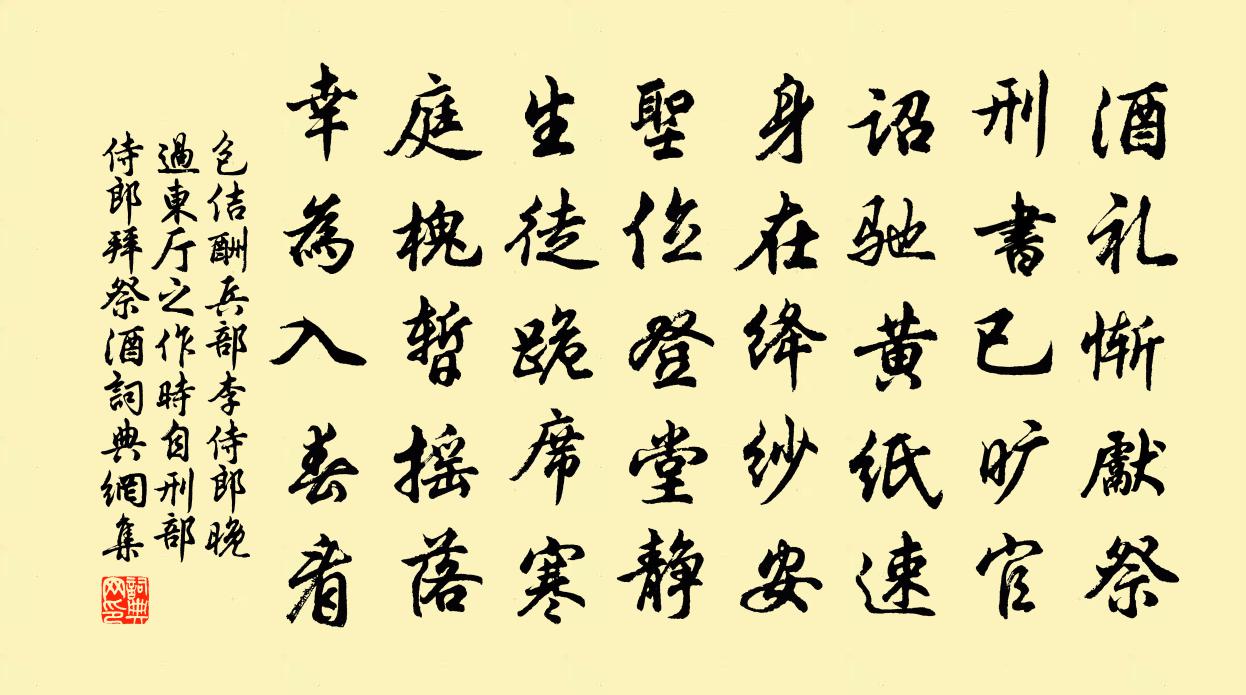 酒礼惭獻祭
刑書已旷官
詔驰黄紙速
身在绛纱安
聖位登堂静
生徒跪席寒
庭槐暫摇落
幸為入春看
包佶酬兵部李侍郎晚
過東厅之作時自刑部
侍郎拜祭酒詞典網集
詞典网印